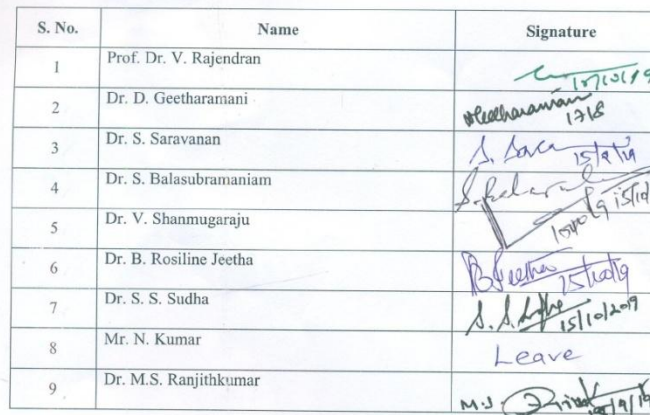 S. No. Name Signature
1 Prof. Dr. V. Rajendran 15/10/19
2 Dr. D. Geetharamani
3 Dr. S. Saravanan S.
4 Dr. S. Balasubramaniam 15/10
5 Dr. V. Shanmugaraju
6 Dr. B. Rosiline Jeetha 15/10/19
7 Dr. S. S. Sudha S. S. 15/10/2019
8 Mr. N. Kumar Leave
9 Dr. M.S. Ranjithkumar M.S.